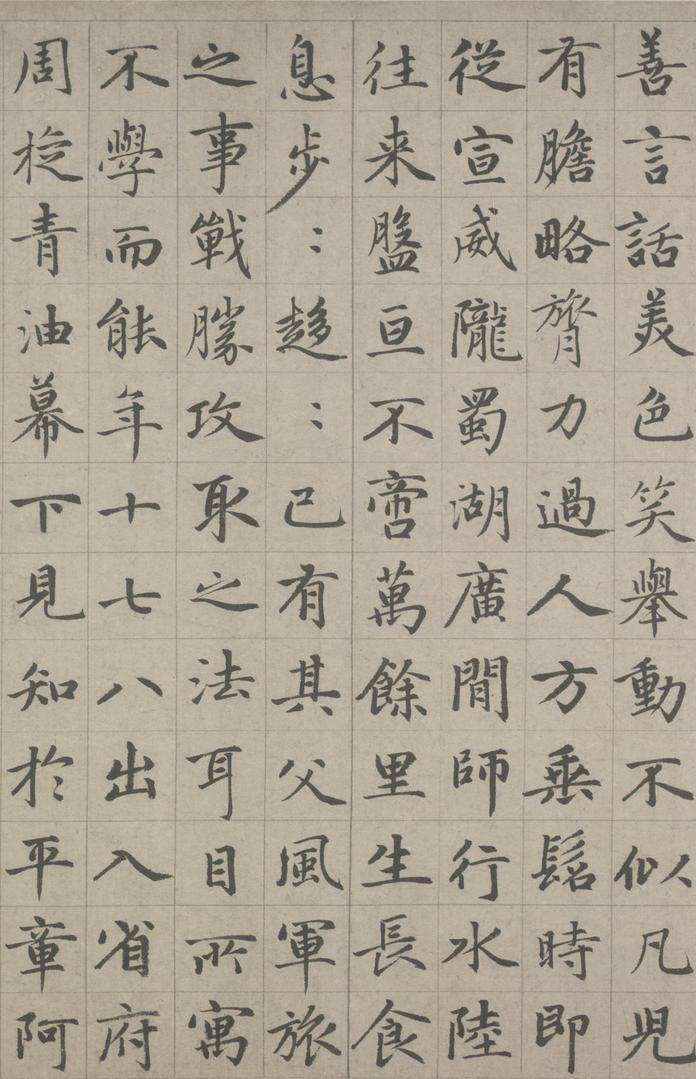 善言話美色笑舉動不似凡兒
有膽略膂力過人方垂髫時即
從宣威隴蜀湖廣閒師行水陸
往来盤亘不啻萬餘里生長食
息步：趍：已有其父風軍旅
之事戰勝攻取之法耳目所寓
不學而能年十七八出入省府
周旋青油幕下見知於平章阿